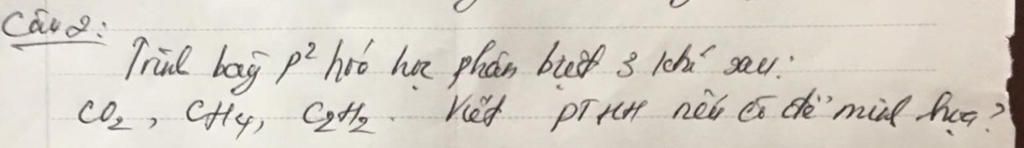 Câu 2:
Trình bày p² hoá học phân biệt 3 khí sau:
CO₂, CH₄, C₂H₂. Viết PTHH nếu có để minh họa?